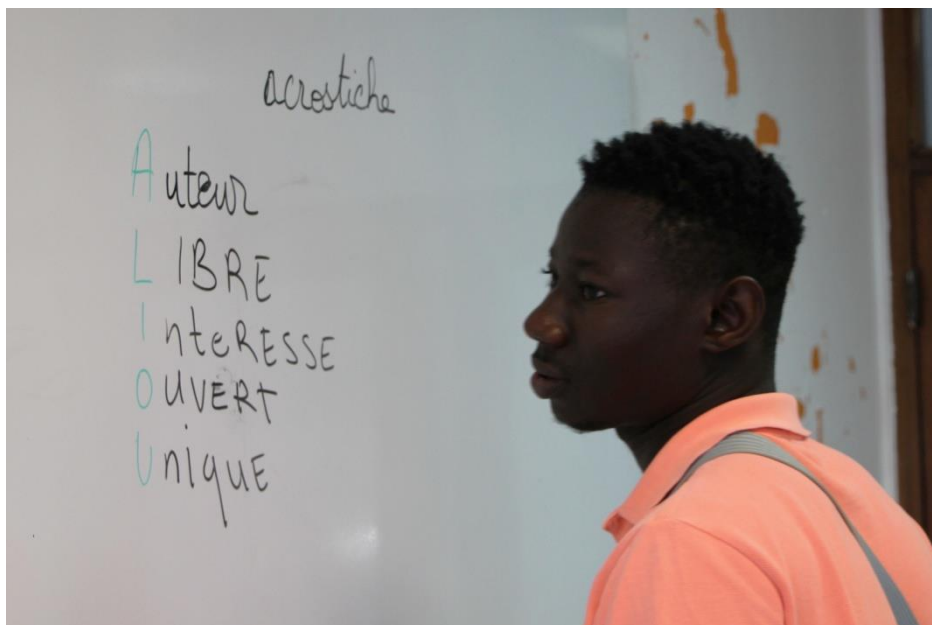 acrostiche
Auteur
LIBRE
InteRESSE
OUVERT
UniquE